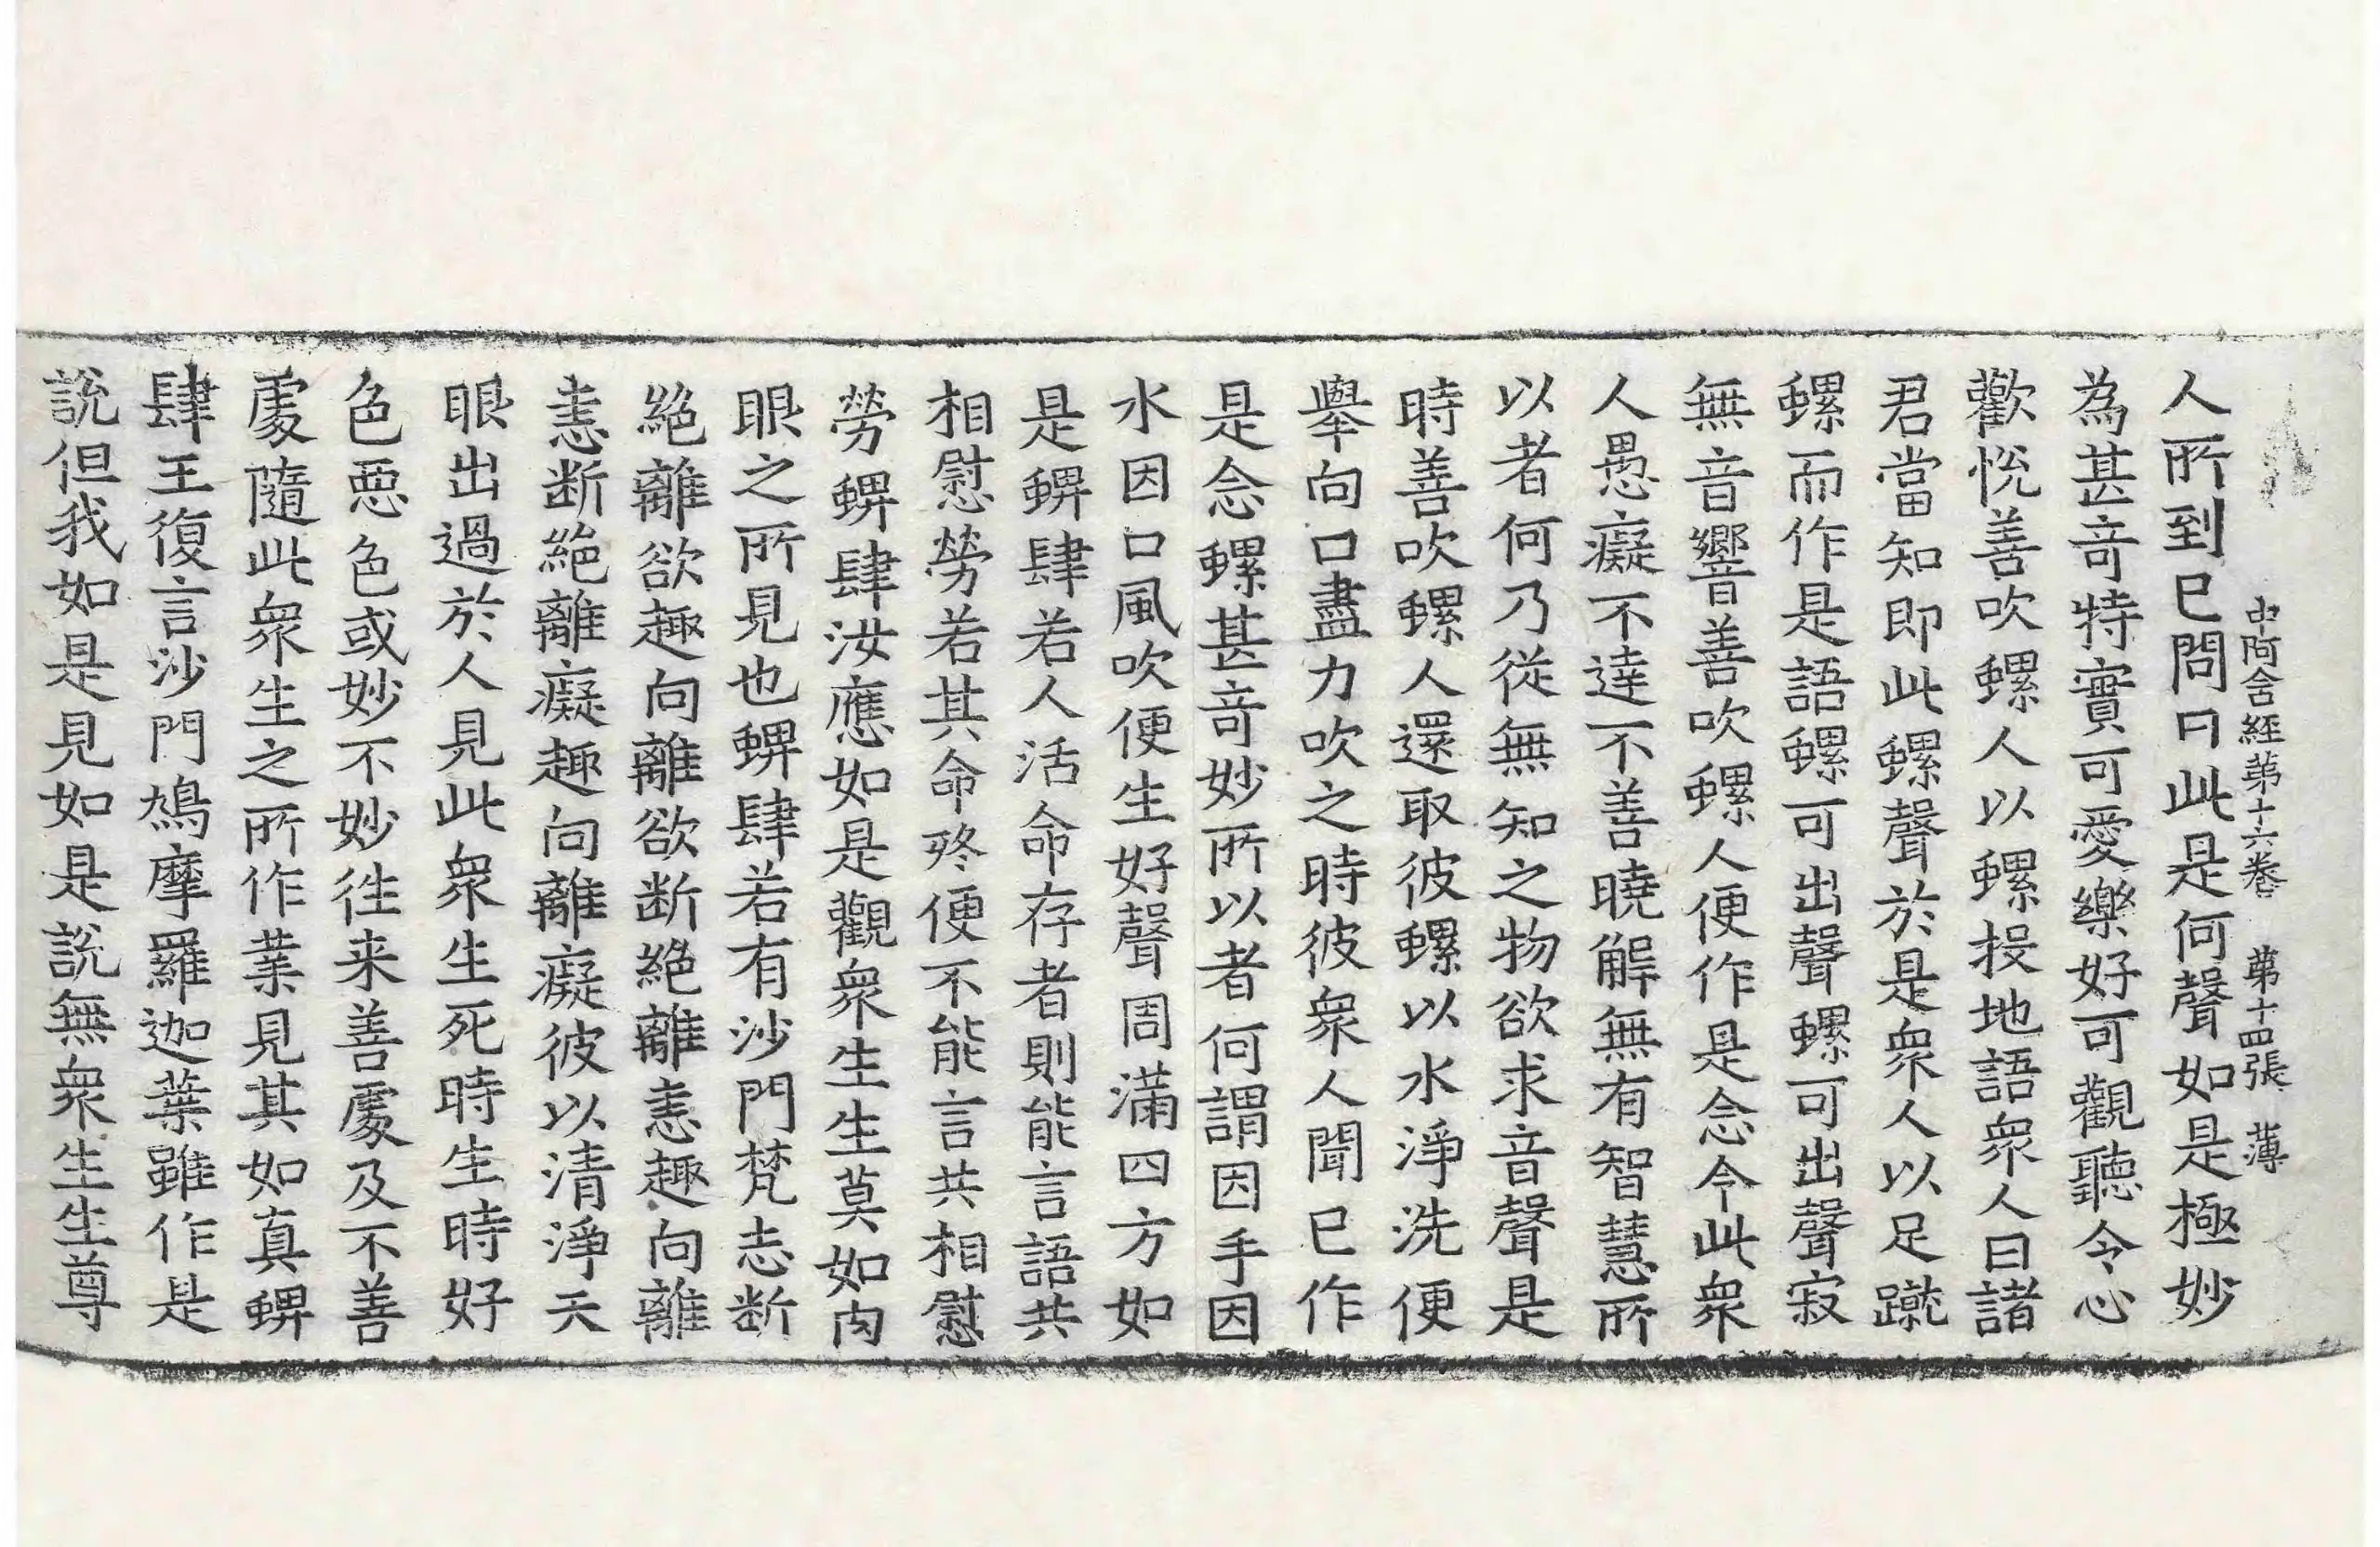 中阿含經第十六卷 第十四張 薄
人所到已問曰此是何聲如是極妙
為甚奇特實可愛樂好可觀聽令心
歡悅善吹螺人以螺投地語衆人曰諸
君當知即此螺聲於是衆人以足蹴
螺而作是語螺可出聲螺可出聲寂
無音響善吹螺人便作是念今此衆
人愚癡不達不善曉解無有智慧所
以者何乃從無知之物欲求音聲是
時善吹螺人還取彼螺以水淨洗便
舉向口盡力吹之時彼衆人聞已作
是念螺甚奇妙所以者何謂因手因
水因口風吹便生好聲周滿四方如
是蜱肆若人活命存者則能言語共
相慰勞若其命終便不能言共相慰
勞蜱肆汝應如是觀衆生生莫如肉
眼之所見也蜱肆若有沙門梵志断
絕離欲趣向離欲断絕離恚趣向離
恚断絕離癡趣向離癡彼以清淨天
眼出過於人見此衆生死時生時好
色惡色或妙不妙往来善處及不善
處隨此衆生之所作業見其如真蜱
肆王復言沙門鳩摩羅迦葉雖作是
說但我如是見如是說無衆生生尊